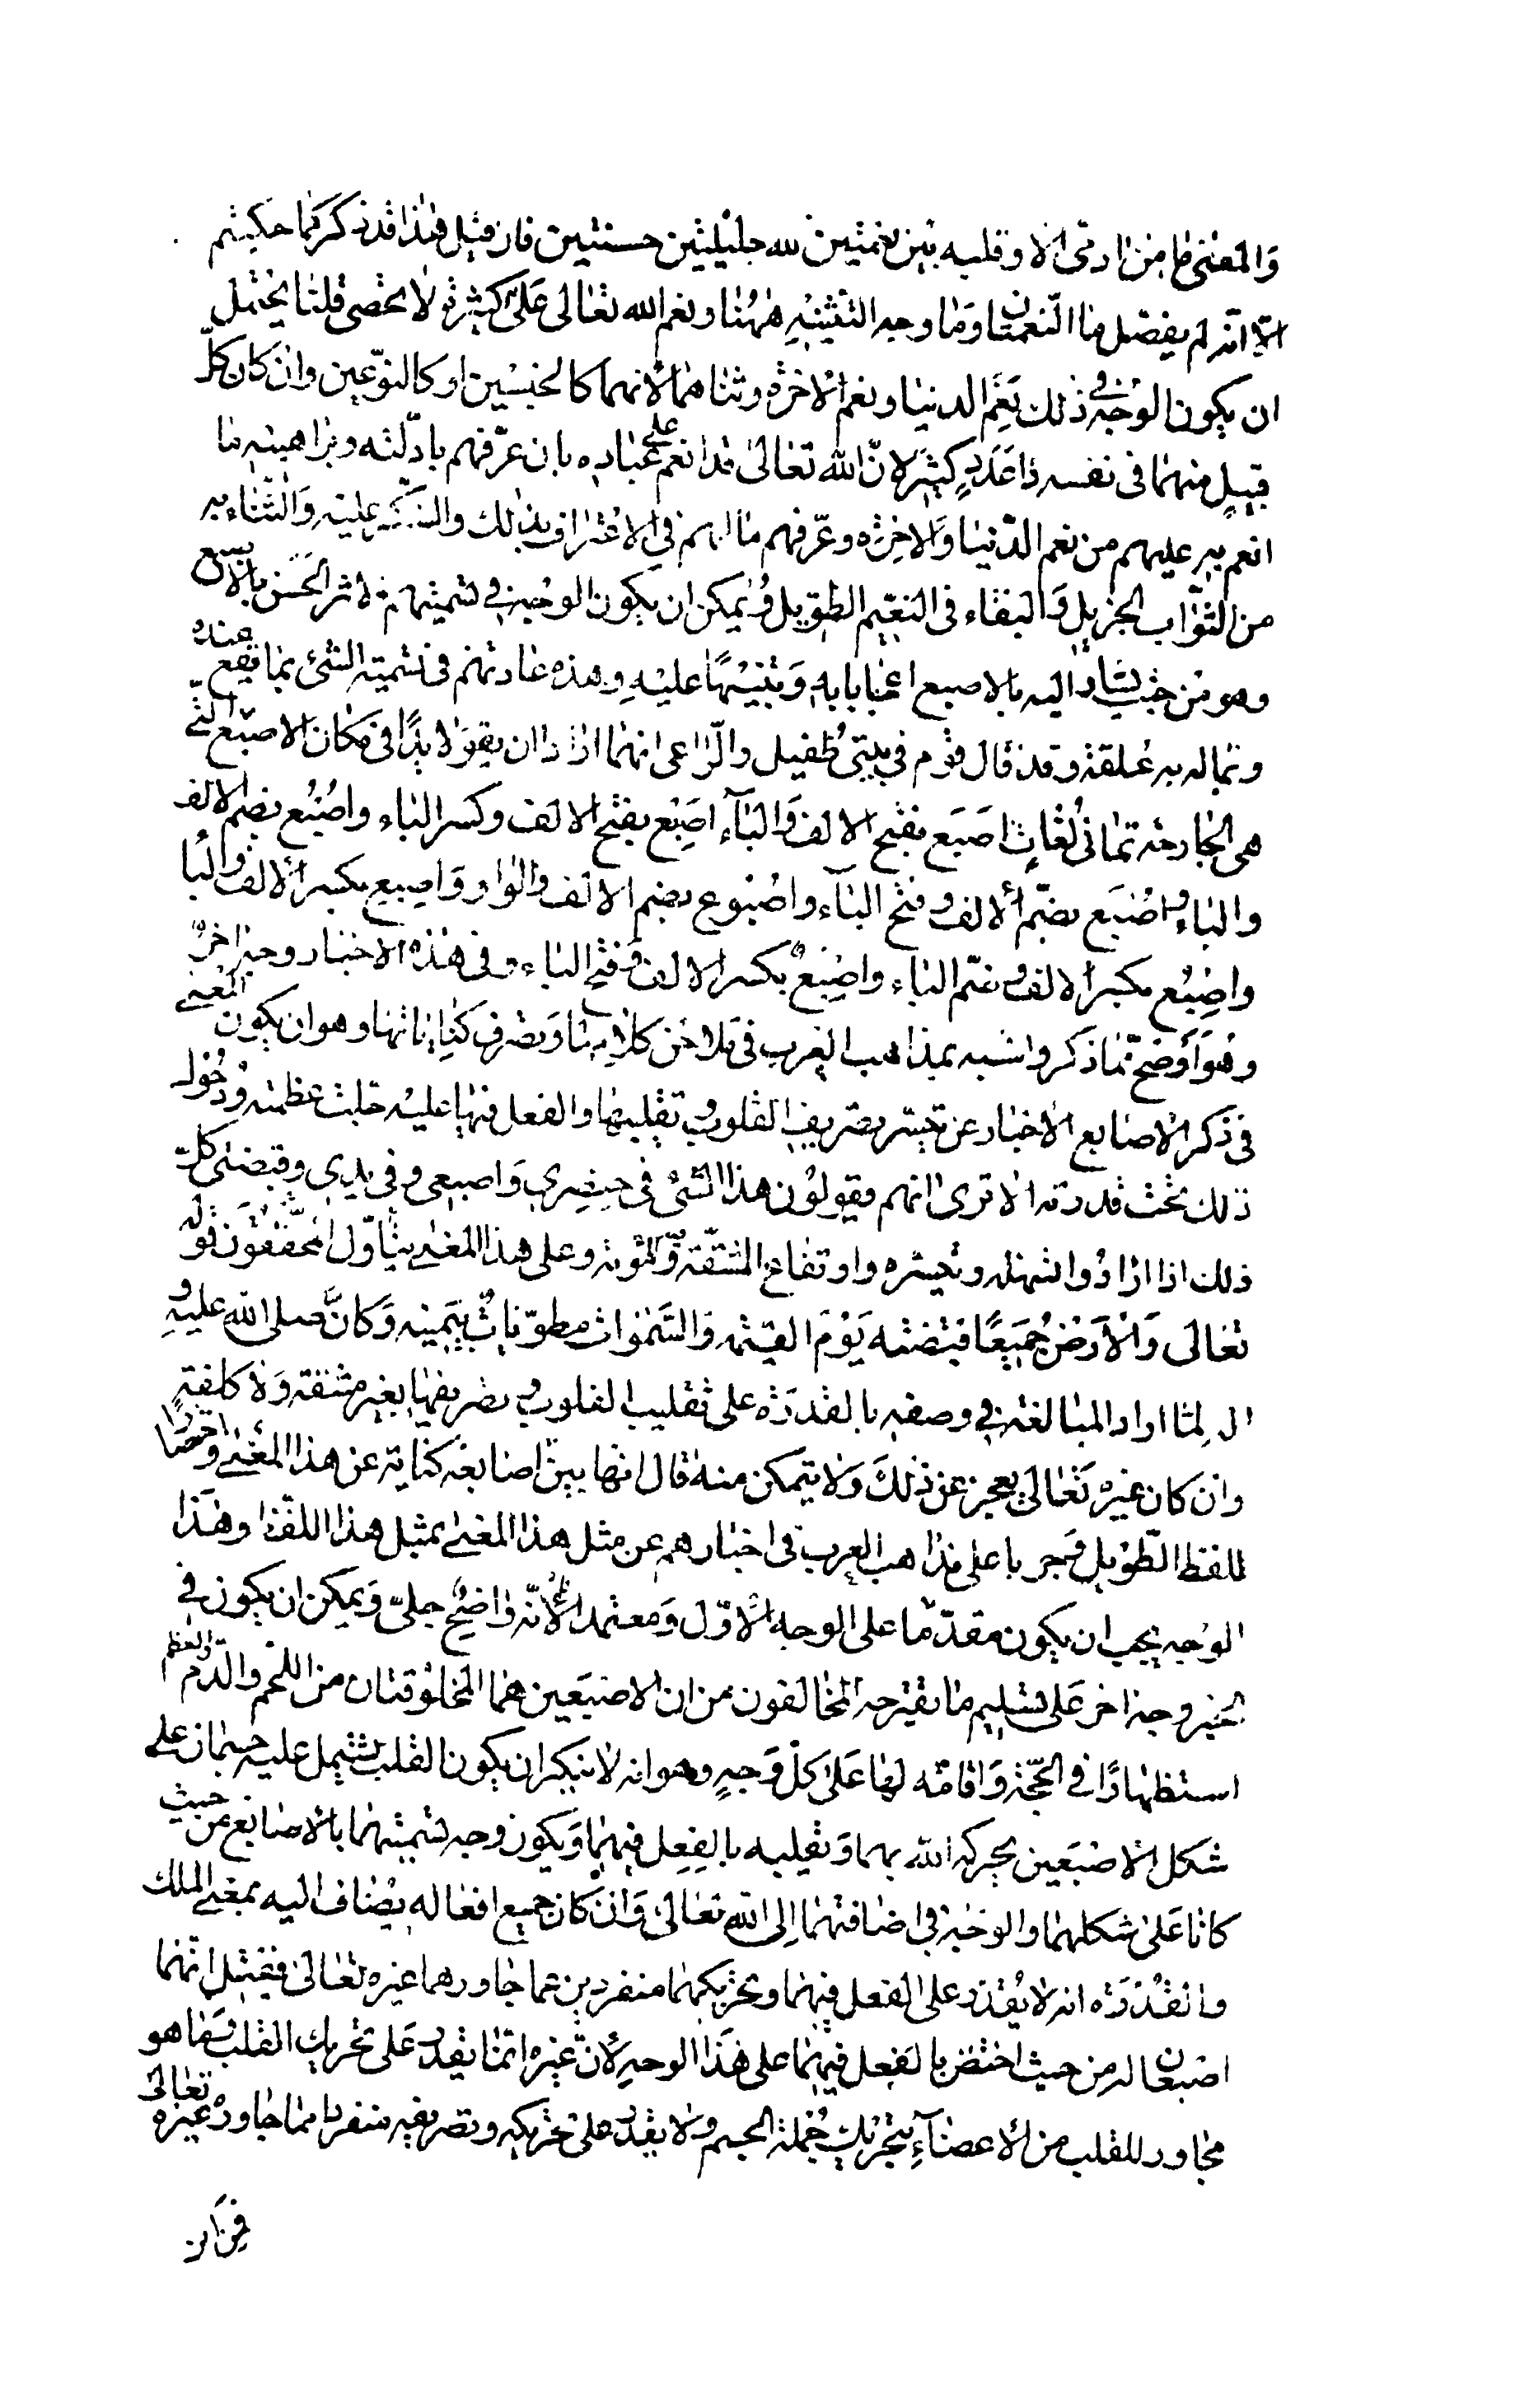 والمعنى ما من ادمى الا وقلبه بين نعمتين لله جليلتين حسنتين فان قيل فهذا قد ذكر كما حكيتم
الا انه لم يفصل ما النعمتان وما وجه التثنية ههنا ونعم الله تعالى على كثرتها لا تحصى قلنا يحتمل
ان يكون الوجه في ذلك نعم الدنيا ونعم الاخرة وثناهما لانهما كالجنسين او كالنوعين وان كان كل
قبيل منهما في نفسه ذا عدد كثير لان الله تعالى قد انعم على عباده بان عرفهم بادلته وبراهينه ما
انعم به عليهم من نعم الدنيا والاخرة وعرفهم ما لهم في الاعتراف بذلك والشكر عليه والثناء به
من الثواب الجزيل والبقاء في النعيم الطويل ويمكن ان يكون الوجه في تسميتهم للاثر الحسن بالاصبع
وهو من حيث يشار اليه بالاصبع اعجابا به وتنبيها عليه وهذه عادتهم في تسمية الشئ بما يقع عنده
وبما له به علقة وقد قال قوم في بيتي طفيل والراعي انهما ارادا ان يقولا يدا في مكان الاصبع التي
هي الجارحة ثماني لغات اصبع بفتح الالف والباء اصبع بفتح الالف وكسر الباء واصبع بضم الالف
والباء واصبع بضم الالف وفتح الباء واصبوع بضم الالف والواو واصبع بكسر الالف والبا
واصبع بكسر الالف وضم الباء واصبع بكسر الالف وفتح الباء وفي هذه الاخبار وجه اخر
وهو اوضح مما ذكر واشبه بمذاهب العرب في ملاحن كلامها وتصرف كناياتها وهو ان يكون المعنى
في ذكر الاصابع الاخبار عن تيسر تصريف القلوب وتقليبها والفعل فيها عليه جلت عظمته ودخول
ذلك تحت قدرته الا ترى انهم يقولون هذا الشئ في خنصري واصبعي وفي يدي وقبضتي كل
ذلك اذا ارادوا تسهله وتيسره وارتفاع المشقة والمؤنة وعلى هذا المعنى يتأول المحققون قوله
تعالى والارض جميعا قبضته يوم القيمة والسموات مطويات بيمينه وكان صلى الله عليه و
اله لما اراد المبالغة في وصفه بالقدرة على تقليب القلوب وتصريفها بغير مشقة ولا كلفة
وان كان غيره تعالى يعجز عن ذلك ولا يتمكن منه قال انها بين اصابعه كناية عن هذا المعنى واختصارا
للفظ الطويل وجريا على مذاهب العرب في اخبارهم عن مثل هذا المعنى بمثل هذا اللفظ وهذا
الوجه يجب ان يكون مقدما على الوجه الاول ومعتمدا لانه واضح جلي ويمكن ان يكون في
الخبر وجه اخر على تسليم ما يقترحه المخالفون من ان الاصبعين هما المخلوقتان من اللحم والدم والعظم
استظهارا في الحجة واقامة لها على كل وجه وهو انه لا ينكر ان يكون القلب يشتمل عليه جسمان على
شكل الاصبعين يحركه الله بهما وتقليبه بالفعل فيهما ويكون وجه تسميتهما بالاصابع من حيث
كانا على شكلهما والوجه في اضافتهما الى الله تعالى وان كان جميع افعاله يضاف اليه بمعنى الملك
والقدرة انه لا يقدر على الفعل فيهما وتحريكهما منفردين عما جاورهما غيره تعالى فقيل انهما
اصبعان له من حيث اختص بالفعل فيهما على هذا الوجه لان غيره انما يقدر على تحريك القلب وما هو
مجاور للقلب من الاعضاء بتحريك جملة الجسم ولا يقدر على تحريكه وتصريفه منفردا مما جاوره غيره تعالى
فمن اين